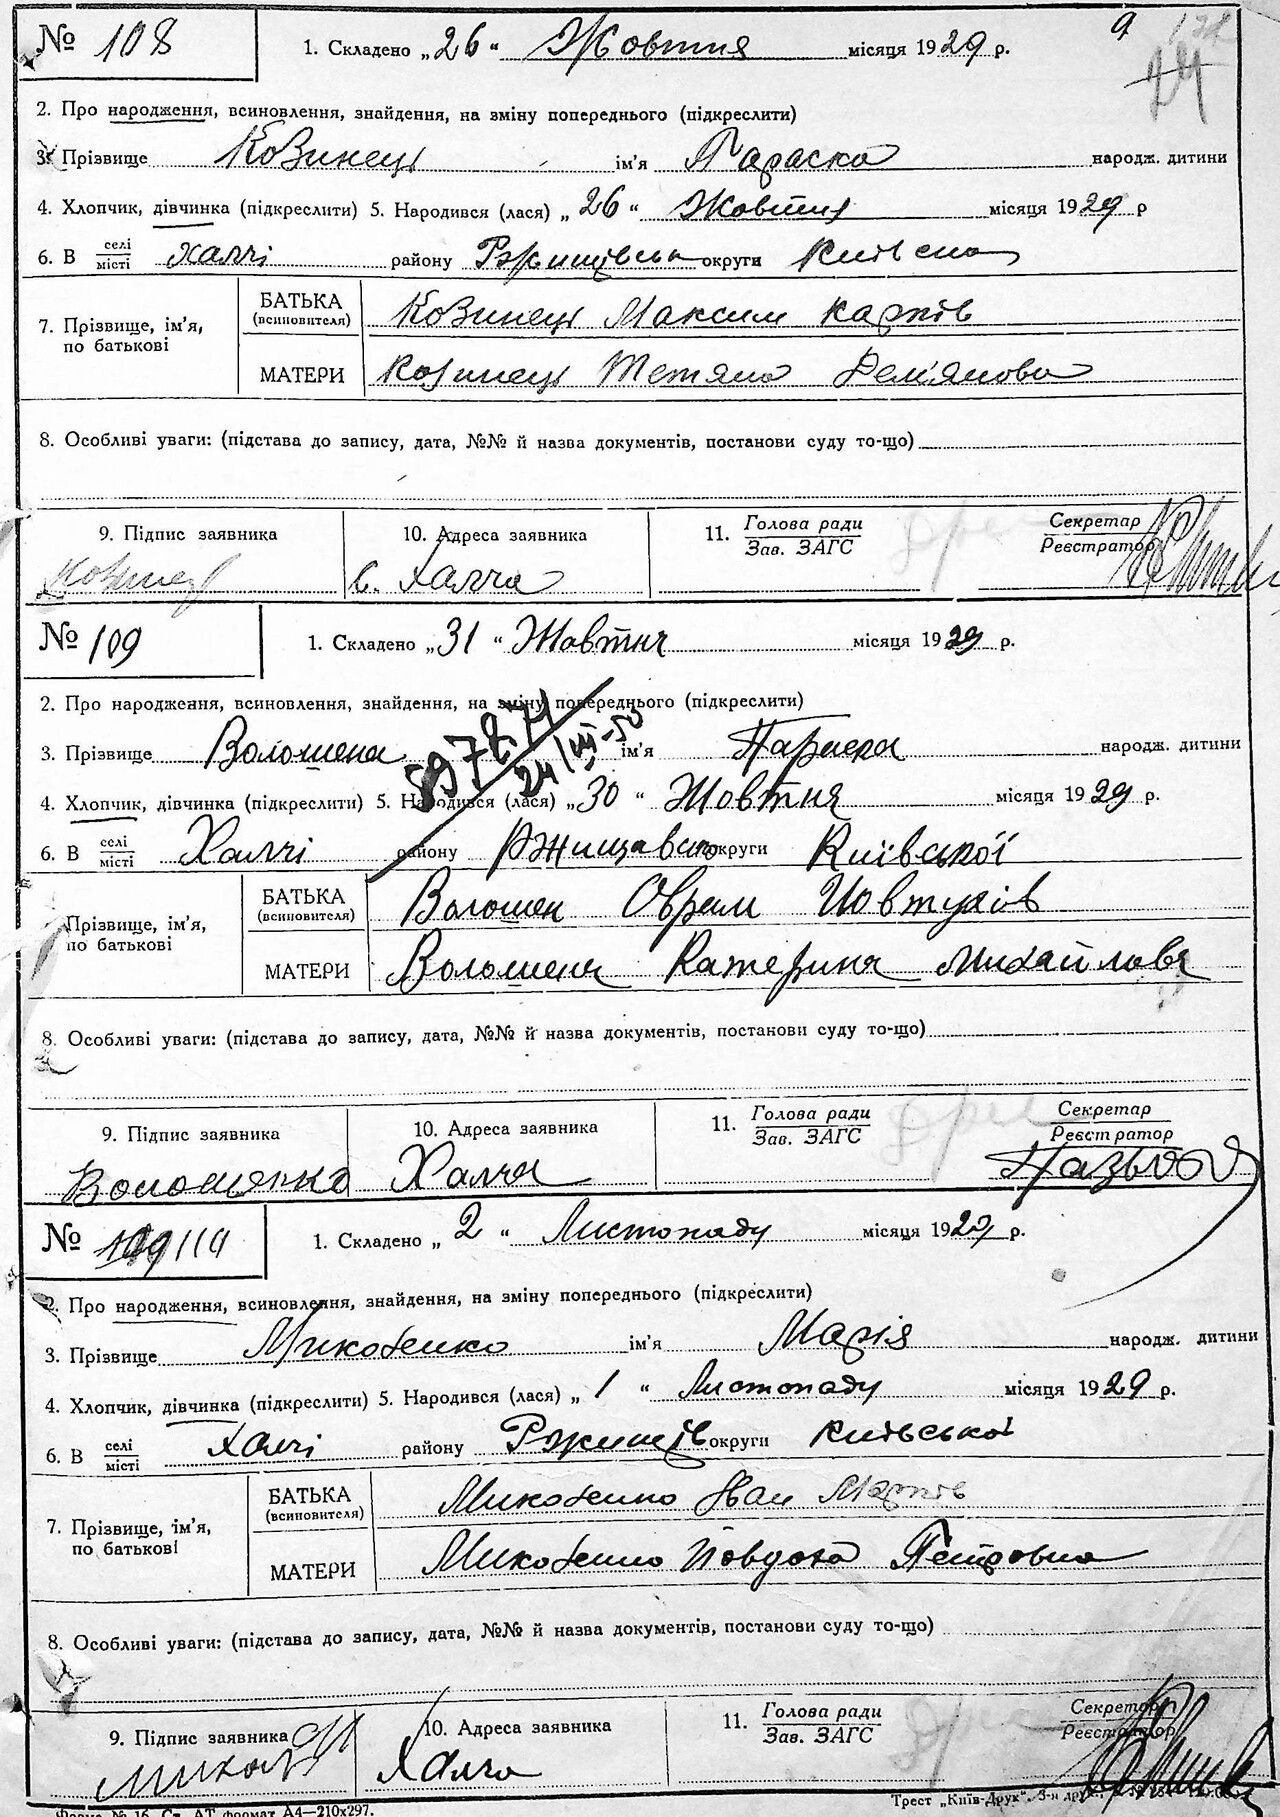 № 108 1. Складено „26“ Жовтня місяця 1929 р. 9
24
2. Про народження, всиновлення, знайдення, на зміну попереднього (підкреслити)
3. Прізвище Козинець ім'я Параска народж. дитини
4. Хлопчик, дівчинка (підкреслити) 5. Народився (лася) „26“ Жовтня місяця 1929 р
6. В селі місті Халчі району Ржищівськ округи Київська
7. Прізвище, ім'я, по батькові
БАТЬКА (всиновителя) Козинець Максим Карпів
МАТЕРИ Козинець Тетяна Дем'янова
8. Особливі уваги: (підстава до запису, дата, №№ й назва документів, постанови суду то-що)
9. Підпис заявника 10. Адреса заявника 11. Голова ради Зав. ЗАГС Секретар Реєстратор
Козинец с. Халча
№ 109 1. Складено „31“ Жовтня місяця 1929 р.
2. Про народження, всиновлення, знайдення, на зміну попереднього (підкреслити)
3. Прізвище Волошена ім'я народж. дитини
897871
24/III-50
4. Хлопчик, дівчинка (підкреслити) 5. Народився (лася) „30“ Жовтня місяця 1929 р.
6. В селі місті Халчі району Ржищавсько округи Київської
Прізвище, ім'я, по батькові
БАТЬКА (всиновителя) Волошен Оврам Йовтухів
МАТЕРИ Волошена Катерина Михайлова
8. Особливі уваги: (підстава до запису, дата, №№ й назва документів, постанови суду то-що)
9. Підпис заявника 10. Адреса заявника 11. Голова ради Зав. ЗАГС Секретар Реєстратор
Волошенко Халча
№ 109 110 1. Складено „2“ Листопаду місяця 1929 р.
2. Про народження, всиновлення, знайдення, на зміну попереднього (підкреслити)
3. Прізвище Микобенко ім'я Марія народж. дитини
4. Хлопчик, дівчинка (підкреслити) 5. Народився (лася) „1“ Листопаду місяця 1929 р.
6. В селі місті Халчі району Ржищів округи Київської
7. Прізвище, ім'я, по батькові
БАТЬКА (всиновителя) Микобенко Іван Марків
МАТЕРИ Микобенко Йовдоха Петровна
8. Особливі уваги: (підстава до запису, дата, №№ й назва документів, постанови суду то-що)
9. Підпис заявника 10. Адреса заявника 11. Голова ради Зав. ЗАГС Секретар Реєстратор
Халча
Форма № 16. Ст. АТ формат А4—210x297. Трест „Київ-Друк“.